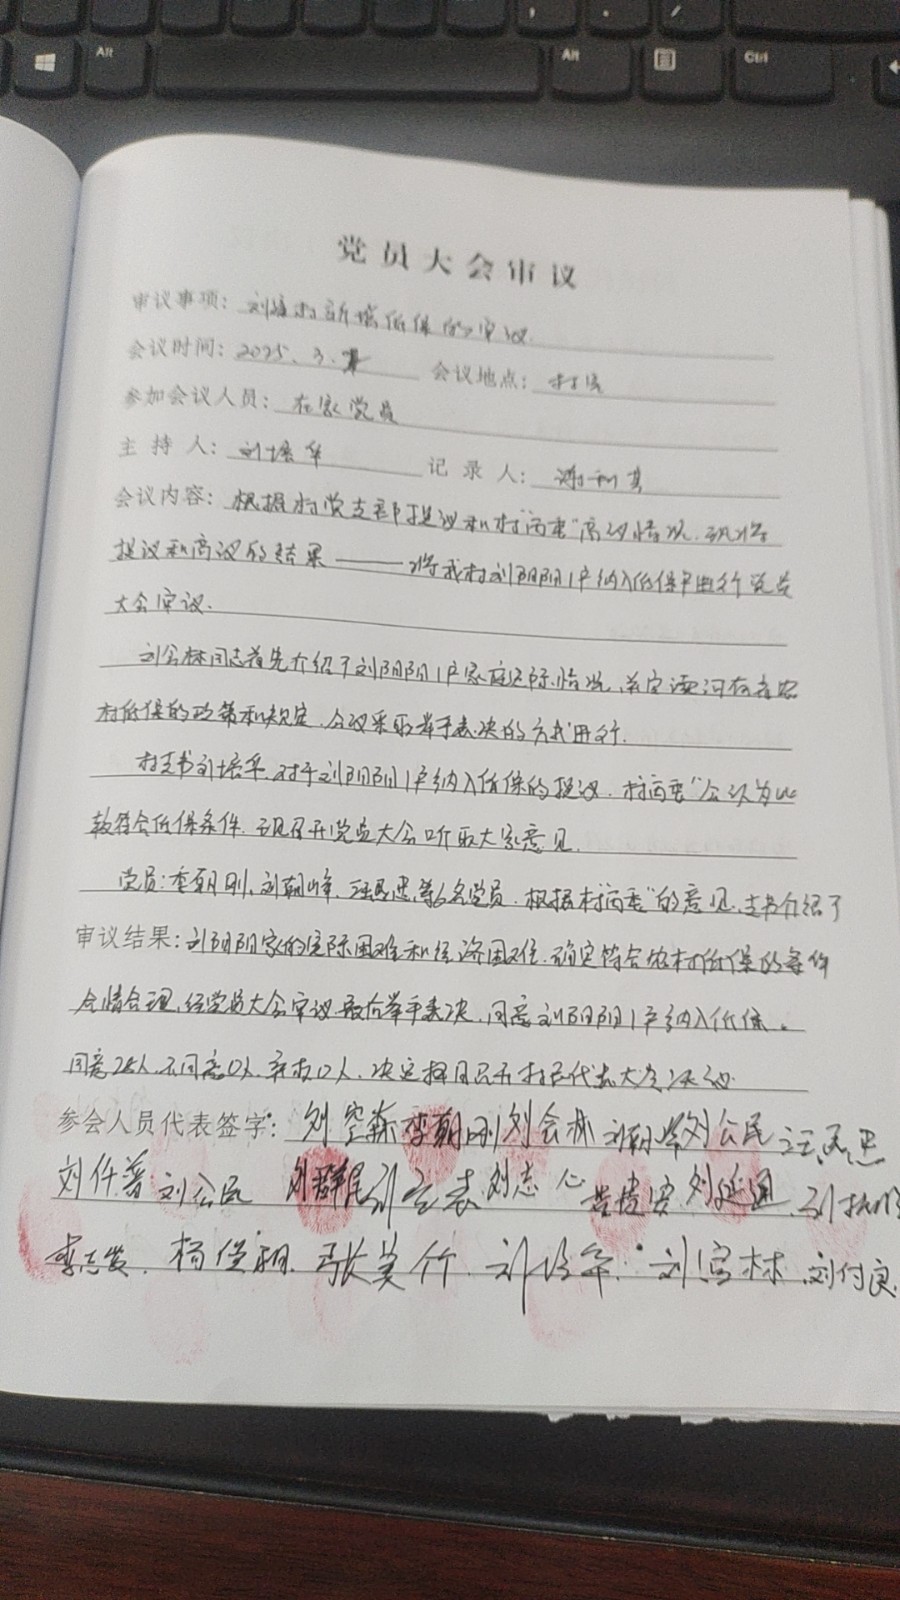 党员大会审议
审议事项：刘 村新增低保的审议
会议时间：2025.3. 会议地点：村
参加会议人员：在家党员
主持人：刘培华 记录人：谢
会议内容：根据村党支部提议和村"两委"商议情况，现将
提议和商议的结果——将我村刘阴阴1户纳入低保户进行党员
大会审议.
刘会林同志首先介绍了刘阴阴1户家庭实际情况，并宣读 有关农
村低保的政策和规定，会议采取举手表决的方式进行.
村支书刘培华对于刘阴阴1户纳入低保的提议，村两委"会认为
较符合低保条件，现召开党员大会听取大家意见.
党员：李朝刚、刘朝峰、汪 忠等6名党员，根据村"两委"的意见，支书介绍了
审议结果：刘阴阴家的实际困难和经济困难，确定符合农村低保的条件
合情合理，经党员大会审议最后举手表决，同意刘阴阴1户纳入低保。
同意28人，不同意0人，弃权0人，决定择日召开村民代表大会决议
参会人员代表签字：刘 森 李朝刚 刘会林 刘朝 刘公民 汪 忠
刘公民 刘 表 刘志心 刘延通
李志 杨 张美竹 刘培华 刘 林 刘付良